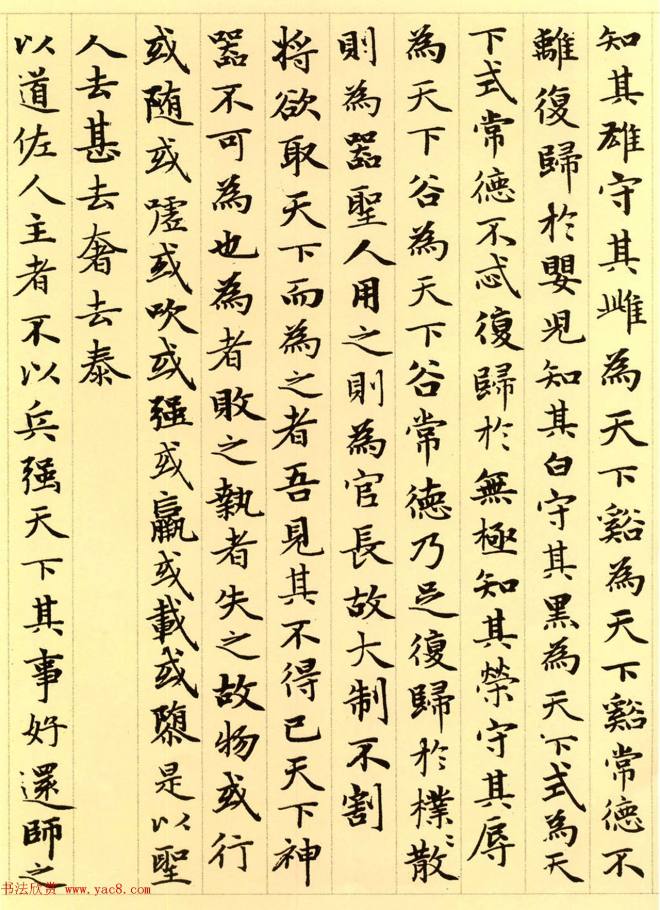 知其雄守其雌為天下谿為天下谿常德不
離復歸於嬰児知其白守其黑為天下式為天
下式常德不忒復歸於無極知其榮守其辱
為天下谷為天下谷常德乃足復歸於樸〻散
則為器聖人用之則為官長故大制不割
將欲取天下而為之者吾見其不得已天下神
器不可為也為者敗之執者失之故物或行
或随或嘘或吹或强或羸或載或隳是以聖
人去甚去奢去泰
以道佐人主者不以兵强天下其事好還師之
书法欣赏 www.yac8.com